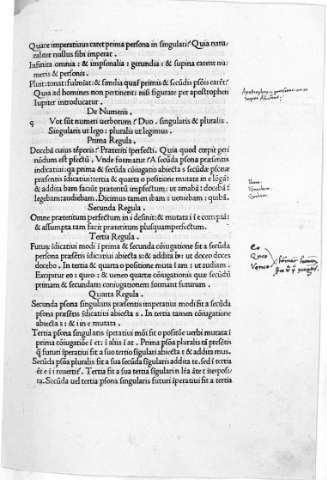 Quare imperatiuus caret prima persona in singulari? Quia natu
raliter nullus sibi imperat.
Infinita omnia: & impsonalia: gerundia: & supina carent nu
meris & personis.
Pluit: tonat: fulminat: & similia quaſ primis & secūdis psōis carēt?
Quia ad homines non pertinent: nisi figurate per apostrophen
Iupiter introducatur.
De Numeris.
Vot sūt numeri uerborum? Duo. singularis & pluralis.
Singularis ut lego: pluralis ut legimus.
Prima Regula.
indicatiui: qua prima & secūda cōiugatio abiecta s: secūda psona
præsentis īdicatiui: tertia & quarta o positione mutata in e longā:
& addita bam faciūt præteritū impfectum: ut amabā: docebā:
legebam: audiebam. Dicimus tamen ibam: ueniebam: quibā.
Secunda Regula.
Omne præteritum perfectum in i desinit: & mutata i
& assumpta ram facit præteritum plusquamperfectum.
Tertia Regula.
Futuꝝ īdicatiui modi ī prima & secunda cōiugatione fit a secūda
persona præsētis īdicatiui abiecta s: & addita bo: ut doceo doces
docebo. In tertia & quarta o positione mutata ī am: ut audiam.
Excipitur eo: queo: & ueneo quartæ cōiugationis quæ secūdū
primam & secundam coniugationem formant futurum.
Quarta Regula.
Secunda psona singularis præsentis imperatiui modi fit a secūda
psona præsētis īdicatiui abiecta s. In tertia tamen cōiugatione
abiecta s: & i in e mutata.
Tertia psona singularis īpetatiui modi fit o positiōe uerbi mutata ī
prima cōiugatiōe ī et: ī aliis ī at. Prima psōa pluralis tā præsētis
ꝗ̃ futuri īperatiui fit a sua tertia sigulari abiecta t & addita mus.
Secūda psōa pluralis fit a sua secūda sigulari addita te. sed ī tertia
ēt e ī i reuertit. Tertia fit a sua tertia sigulari
ta. Secūda uel tertia psona singularis futuri īperatiui fit a tertia
Eo
Queo
Veneo